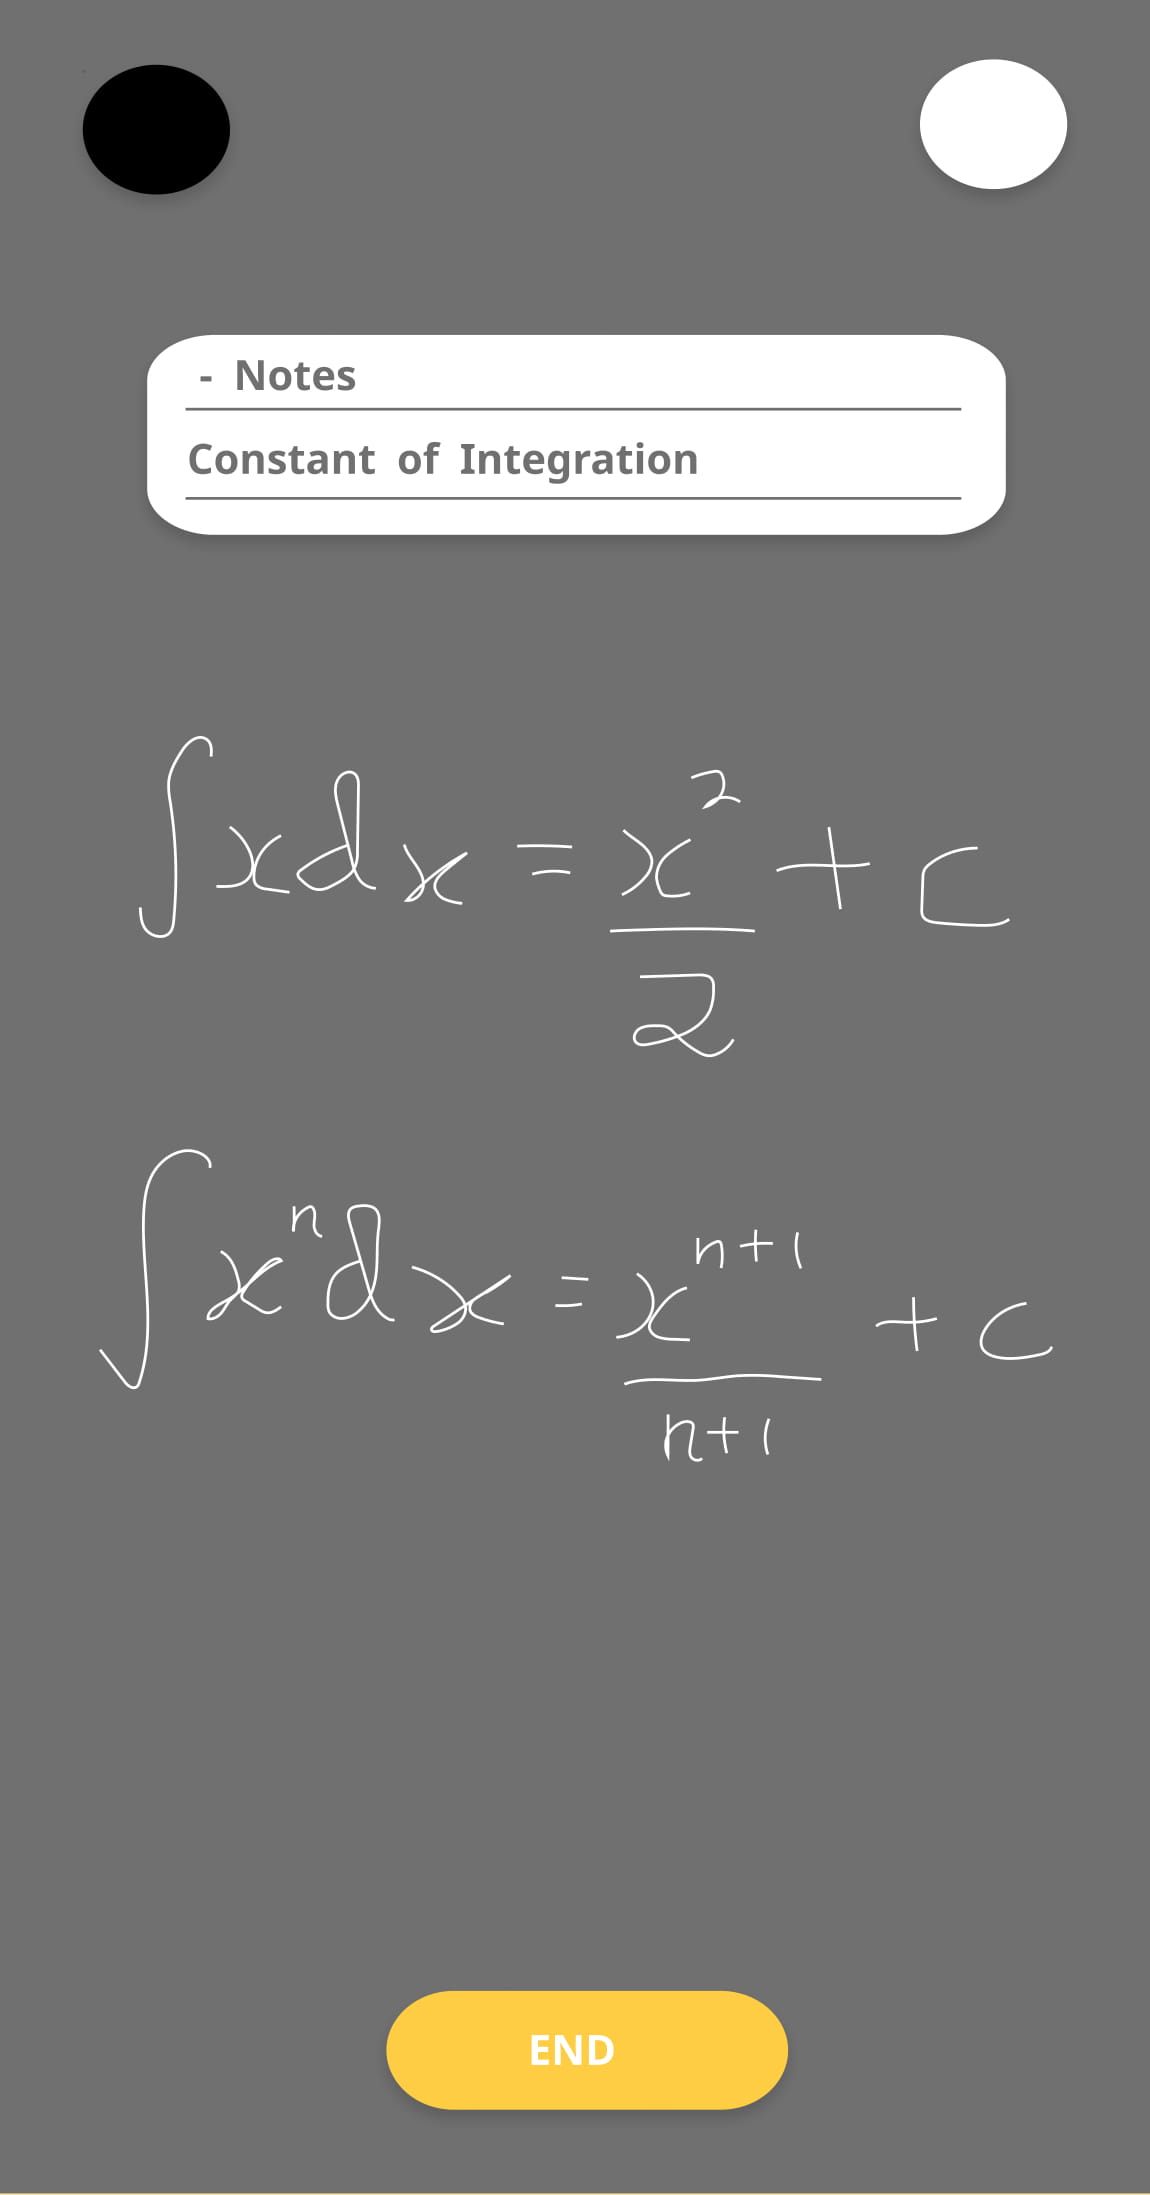 - Notes
Constant of Integration
∫xdx = x²/2 + c
∫xⁿdx = xⁿ⁺¹/n+1 + c
END